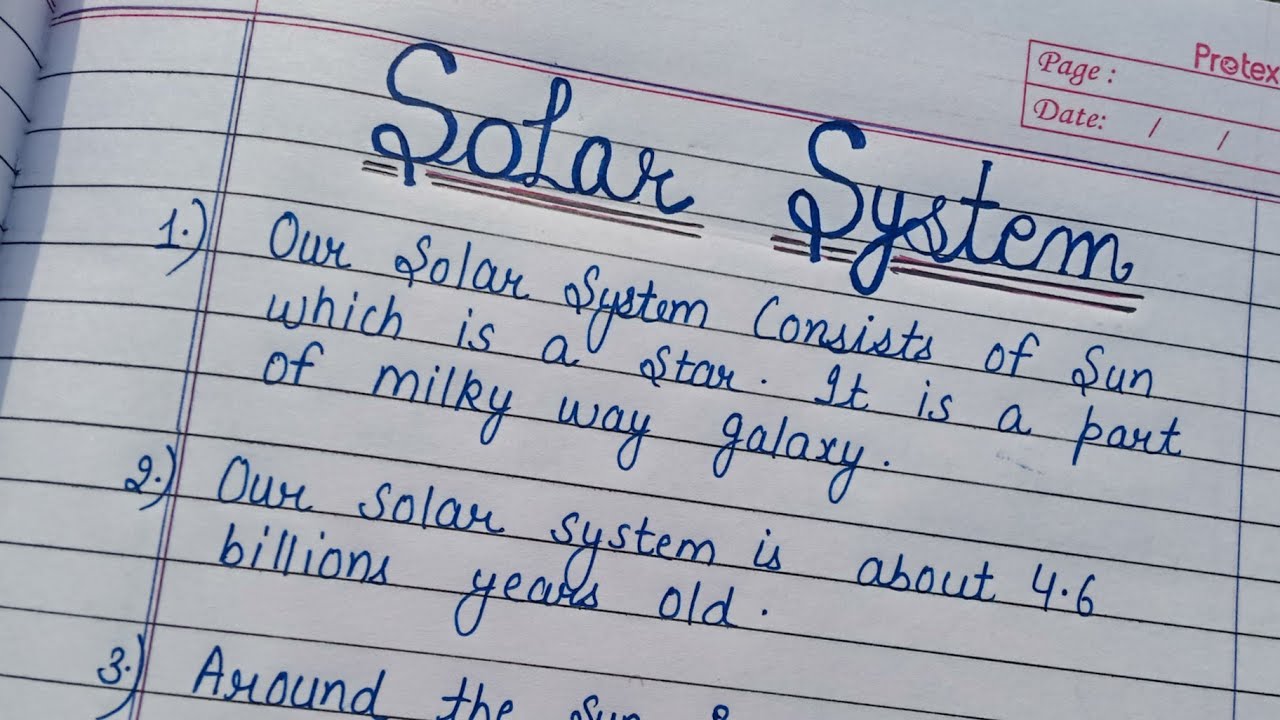 Protex
Page :
Date: / /
Solar System
1.) Our Solar System Consists of Sun
which is a star. It is a part
of milky way galaxy.
2.) Our solar system is about 4.6
billions years old.
3.) Around the Sun